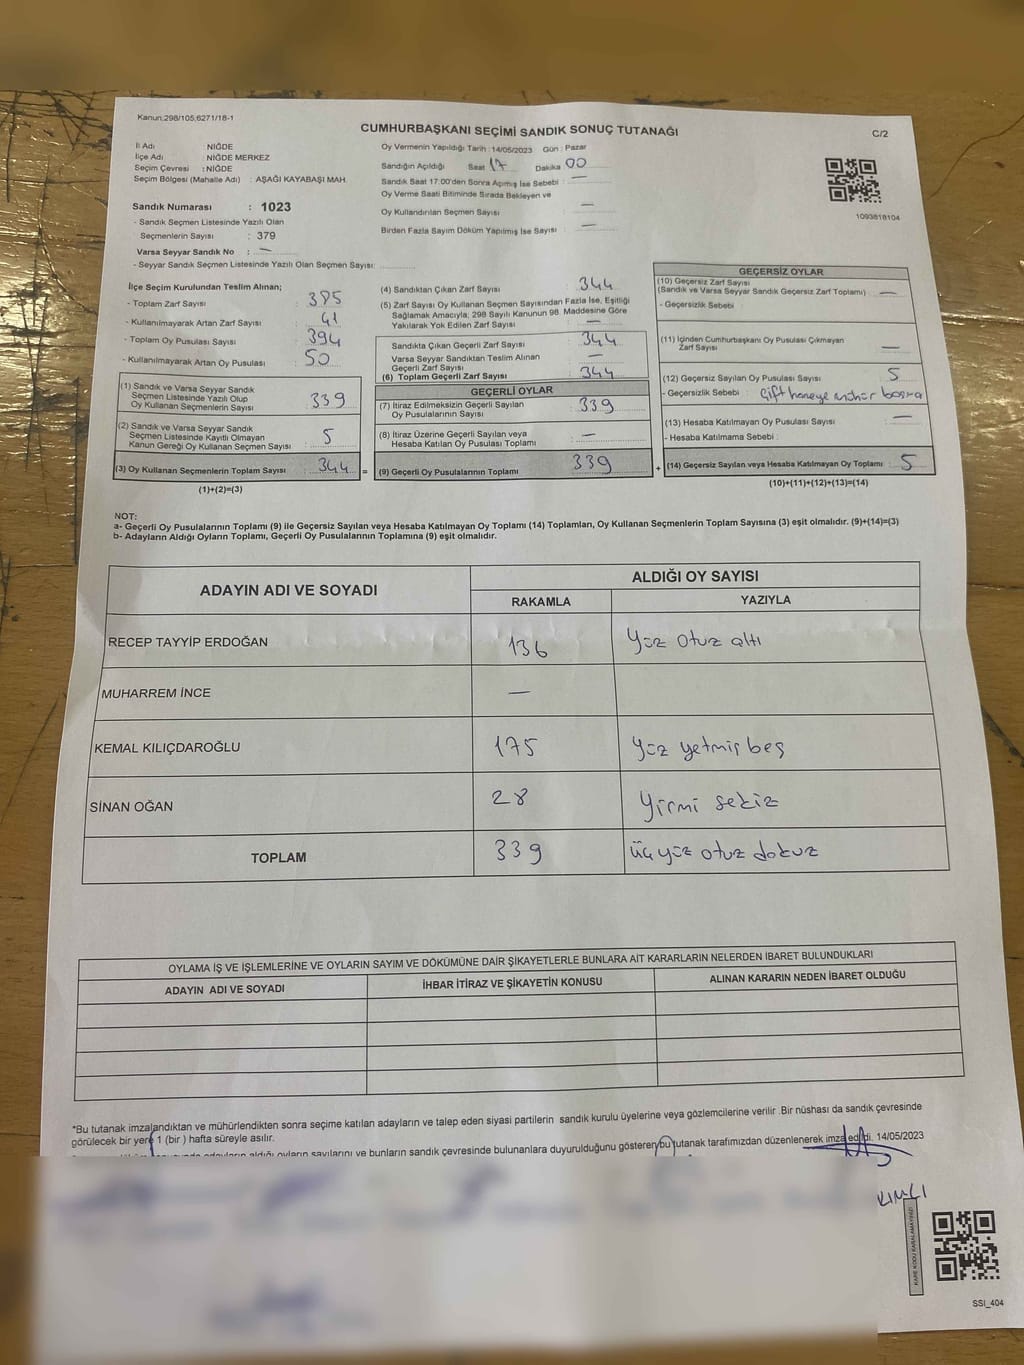 Kanun:298/105,6271/18-1
CUMHURBAŞKANI SEÇİMİ SANDIK SONUÇ TUTANAĞI
C/2
İl Adı : NİĞDE
İlçe Adı : NİĞDE MERKEZ
Seçim Çevresi : NİĞDE
Seçim Bölgesi (Mahalle Adı) : AŞAĞI KAYABAŞI MAH.
Sandık Numarası : 1023
- Sandık Seçmen Listesinde Yazılı Olan
Seçmenlerin Sayısı : 379
Varsa Seyyar Sandık No : —
- Seyyar Sandık Seçmen Listesinde Yazılı Olan Seçmen Sayısı:
Oy Vermenin Yapıldığı Tarih : 14/05/2023 Gün : Pazar
Sandığın Açıldığı Saat 17 Dakika 00
Sandık Saat 17:00'den Sonra Açımış İse Sebebi : —
Oy Verme Saati Bitiminde Sırada Bekleyen ve
Oy Kullandırılan Seçmen Sayısı : —
Birden Fazla Sayım Döküm Yapılmış İse Sayısı : —
1093818104
İlçe Seçim Kurulundan Teslim Alınan;
- Toplam Zarf Sayısı : 385
- Kullanılmayarak Artan Zarf Sayısı : 41
- Toplam Oy Pusulası Sayısı : 394
- Kullanılmayarak Artan Oy Pusulası : 50
(1) Sandık ve Varsa Seyyar Sandık
Seçmen Listesinde Yazılı Olup
Oy Kullanan Seçmenlerin Sayısı : 339
(2) Sandık ve Varsa Seyyar Sandık
Seçmen Listesinde Kayıtlı Olmayan
Kanun Gereği Oy Kullanan Seçmen Sayısı : 5
(3) Oy Kullanan Seçmenlerin Toplam Sayısı : 344 =
(1)+(2)=(3)
(4) Sandıktan Çıkan Zarf Sayısı : 344
(5) Zarf Sayısı Oy Kullanan Seçmen Sayısından Fazla İse, Eşitliği
Sağlamak Amacıyla; 298 Sayılı Kanunun 98. Maddesine Göre
Yakılarak Yok Edilen Zarf Sayısı : —
Sandıkta Çıkan Geçerli Zarf Sayısı : 344
Varsa Seyyar Sandıktan Teslim Alınan
Geçerli Zarf Sayısı : —
(6) Toplam Geçerli Zarf Sayısı : 344
GEÇERLİ OYLAR
(7) İtiraz Edilmeksizin Geçerli Sayılan
Oy Pusulalarının Sayısı : 339
(8) İtiraz Üzerine Geçerli Sayılan veya
Hesaba Katılan Oy Pusulası Toplamı : —
(9) Geçerli Oy Pusulalarının Toplamı : 339 +
GEÇERSİZ OYLAR
(10) Geçersiz Zarf Sayısı
(Sandık ve Varsa Seyyar Sandık Geçersiz Zarf Toplamı) : —
- Geçersizlik Sebebi :
(11) İçinden Cumhurbaşkanı Oy Pusulası Çıkmayan
Zarf Sayısı : —
(12) Geçersiz Sayılan Oy Pusulası Sayısı : 5
- Geçersizlik Sebebi : Çift haneye mühür basma
(13) Hesaba Katılmayan Oy Pusulası Sayısı : —
- Hesaba Katılmama Sebebi :
(14) Geçersiz Sayılan veya Hesaba Katılmayan Oy Toplamı : 5
(10)+(11)+(12)+(13)=(14)
NOT:
a- Geçerli Oy Pusulalarının Toplamı (9) ile Geçersiz Sayılan veya Hesaba Katılmayan Oy Toplamı (14) Toplamları, Oy Kullanan Seçmenlerin Toplam Sayısına (3) eşit olmalıdır. (9)+(14)=(3)
b- Adayların Aldığı Oyların Toplamı, Geçerli Oy Pusulalarının Toplamına (9) eşit olmalıdır.
ADAYIN ADI VE SOYADI
ALDIĞI OY SAYISI
RAKAMLA YAZIYLA
RECEP TAYYİP ERDOĞAN 136 Yüz otuz altı
MUHARREM İNCE —
KEMAL KILIÇDAROĞLU 175 Yüz yetmiş beş
SİNAN OĞAN 28 Yirmi sekiz
TOPLAM 339 üç yüz otuz dokuz
OYLAMA İŞ VE İŞLEMLERİNE VE OYLARIN SAYIM VE DÖKÜMÜNE DAİR ŞİKAYETLERLE BUNLARA AİT KARARLARIN NELERDEN İBARET BULUNDUKLARI
ADAYIN ADI VE SOYADI İHBAR İTİRAZ VE ŞİKAYETİN KONUSU ALINAN KARARIN NEDEN İBARET OLDUĞU
*Bu tutanak imzalandıktan ve mühürlendikten sonra seçime katılan adayların ve talep eden siyasi partilerin sandık kurulu üyelerine veya gözlemcilerine verilir .Bir nüshası da sandık çevresinde
görülecek bir yere 1 (bir ) hafta süreyle asılır.
adayların aldığı oyların sayılarını ve bunların sandık çevresinde bulunanlara duyurulduğunu gösteren bu tutanak tarafımızdan düzenlenerek imza edildi. 14/05/2023
KARE KODU KARALAMAYINIZ!
SSI_404